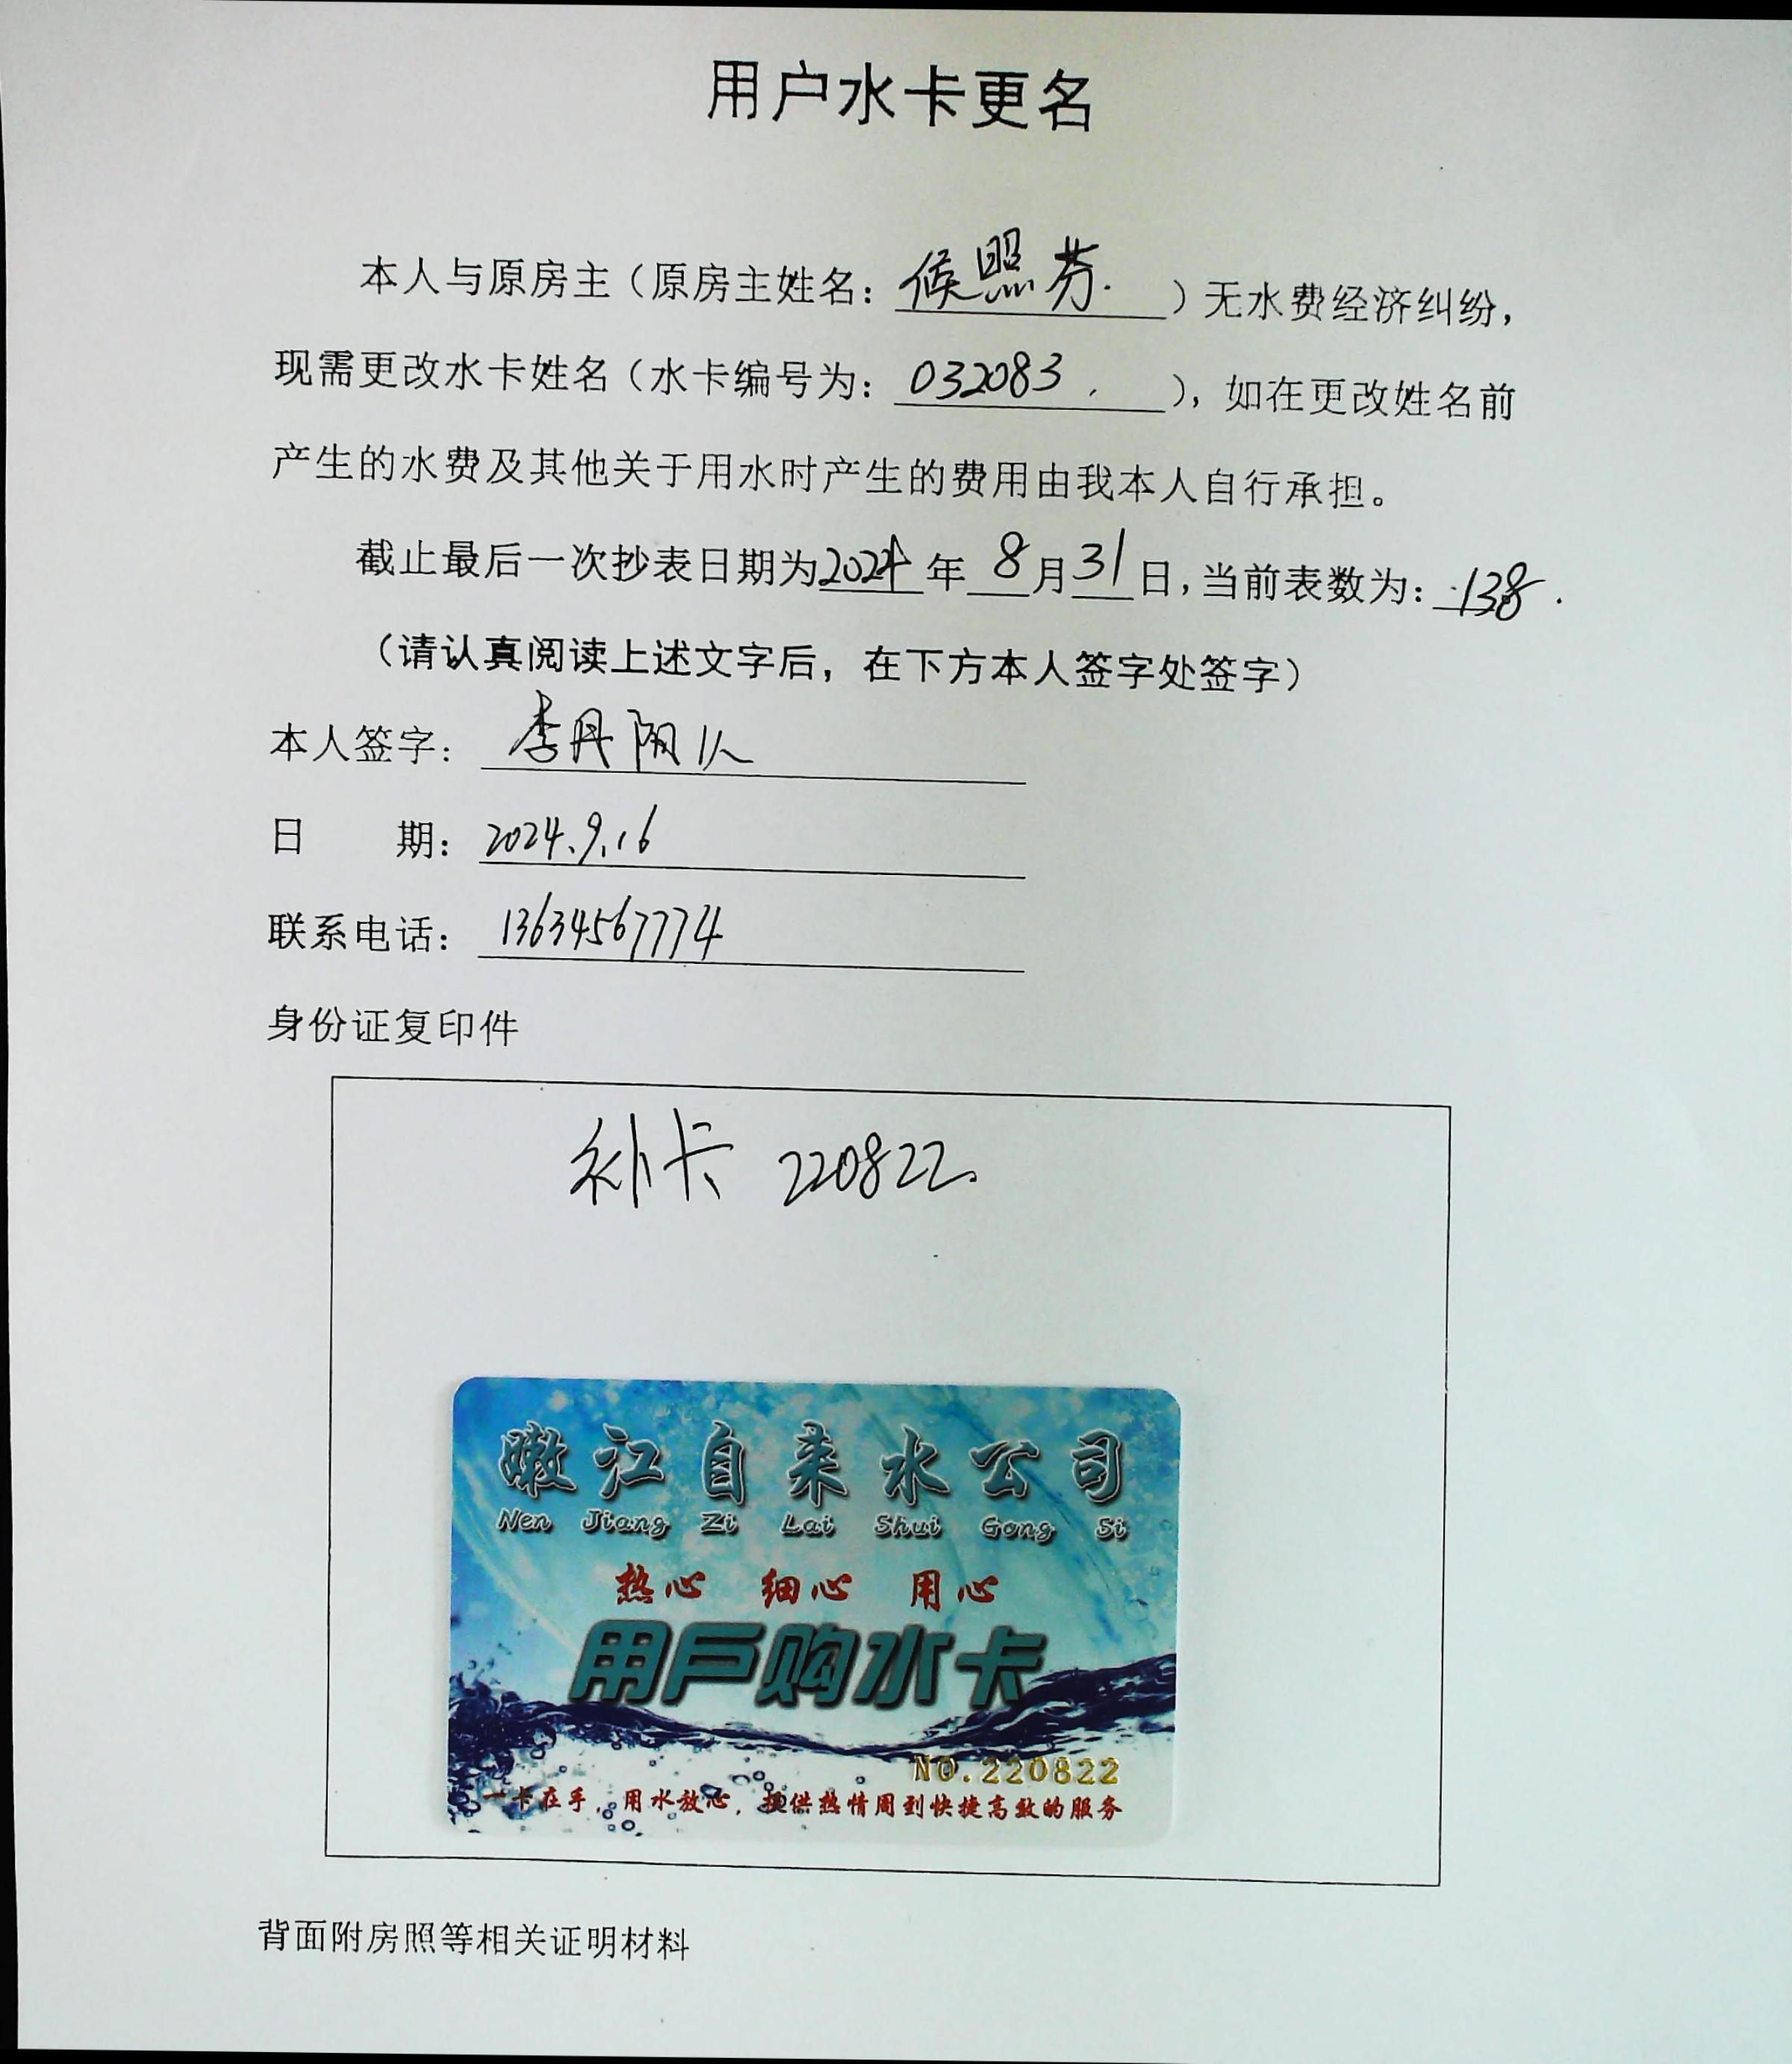 用户水卡更名
本人与原房主（原房主姓名：侯照芬.）无水费经济纠纷，
现需更改水卡姓名（水卡编号为：032083.），如在更改姓名前
产生的水费及其他关于用水时产生的费用由我本人自行承担。
截止最后一次抄表日期为2024年8月31日，当前表数为：138.
（请认真阅读上述文字后，在下方本人签字处签字）
本人签字：李丹阳
日期：2024.9.16
联系电话：13634567774
身份证复印件
补卡 220822.
嫩江自来水公司
Nen Jiang Zi Lai Shui Gong Si
热心 细心 用心
用户购水卡
NO.220822
一卡在手，用水放心，提供热情周到快捷高效的服务
背面附房照等相关证明材料